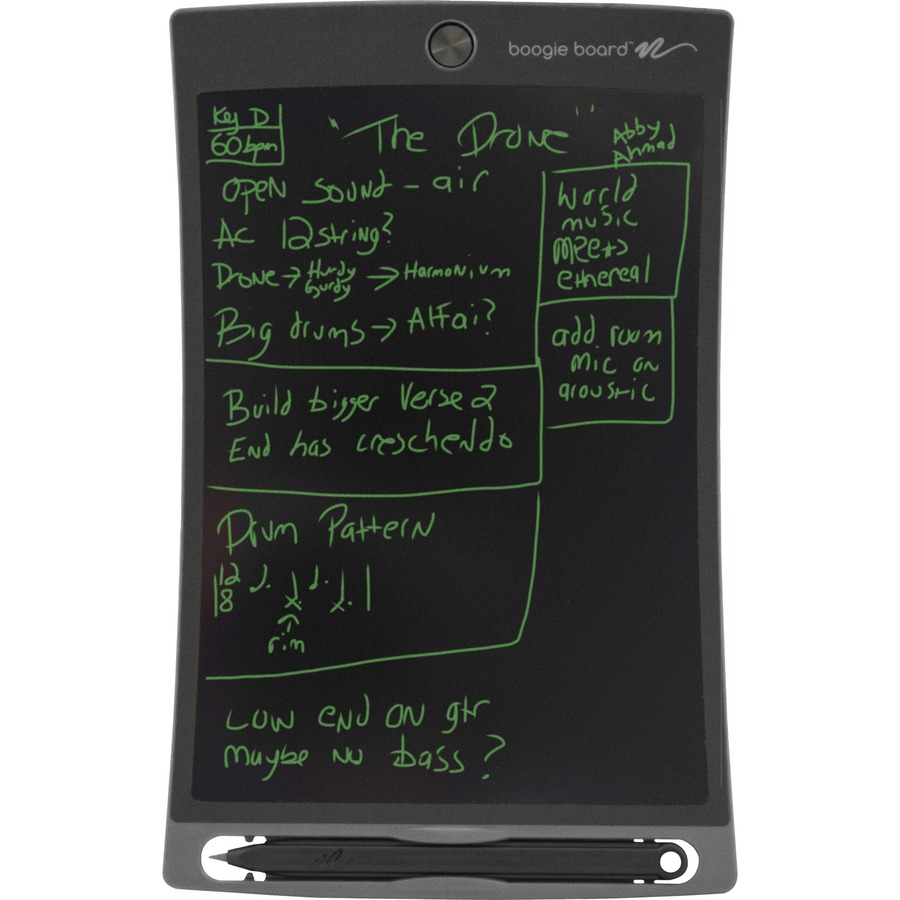 boogie board™
Key D
60bpm
"The Drone"
Abby
Ahmad
OPEN Sound - air
AC 12string?
Drone → Hurdy Gurdy → Harmonium
Big drums → AlFai?
World
music
Meets
ethereal
add room
mic on
acoustic
Build bigger Verse 2
End has creschendo
Drum Pattern
12
8
rim
Low end on gtr
Maybe no bass?